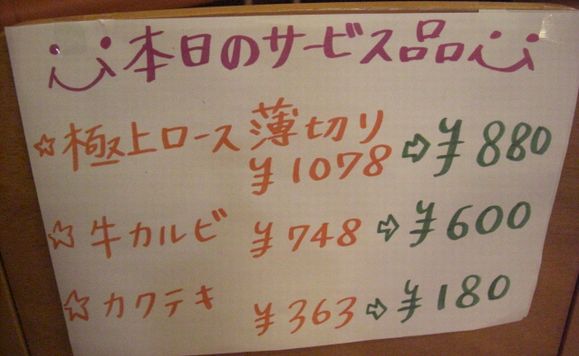 本日のサービス品
☆極上ロース 薄切り
¥1078 ⇨ ¥880
☆牛カルビ ¥748 ⇨ ¥600
☆カクテキ ¥363 ⇨ ¥180